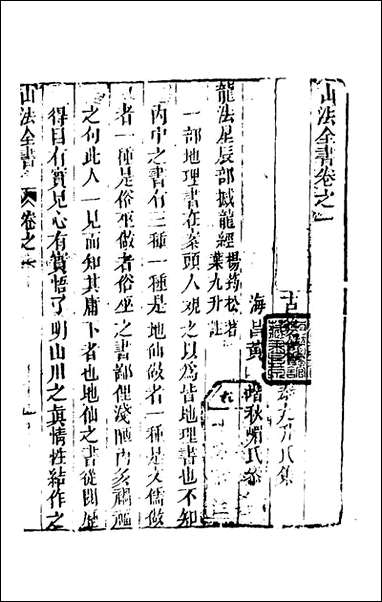 山法全書卷之一
古
氏集
海昌黃
秋
氏參
龍法星辰部撼龍經 楊筠松著
葉九升註
一部地理書在案頭人观之以為皆地理書也不知
內中之書有三種一種是地仙做者一種是文儒做
者一種是俗巫做者俗巫之書鄙俚淺陋丙亥禍福
之句此人一見而知其庸下者也地仙之書從閱歷
得目有實見心有實悟了明山川之真情性結作之
山法全書
卷之一